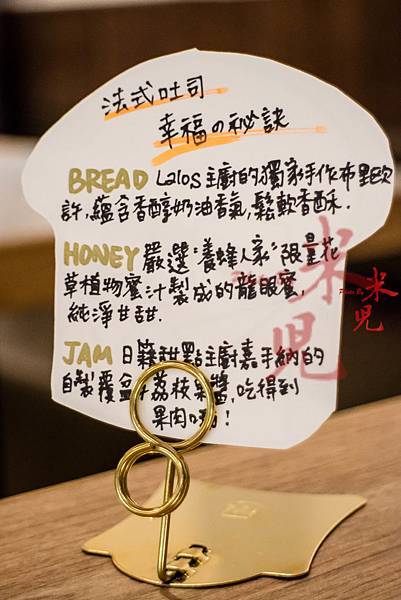 法式吐司
幸福の秘訣
BREAD Lalos主廚的獨家手作布里歐
許,蘊含香醇奶油香氣,鬆軟香酥.
HONEY 嚴選"養蜂人家"限量花
草植物蜜汁製成的龍眼蜜,
純淨甘甜.
JAM 日籍甜點主廚嘉手納的
自製覆盆子荔枝果醬,吃得到
果肉喲!
米兒
Photo By 米兒